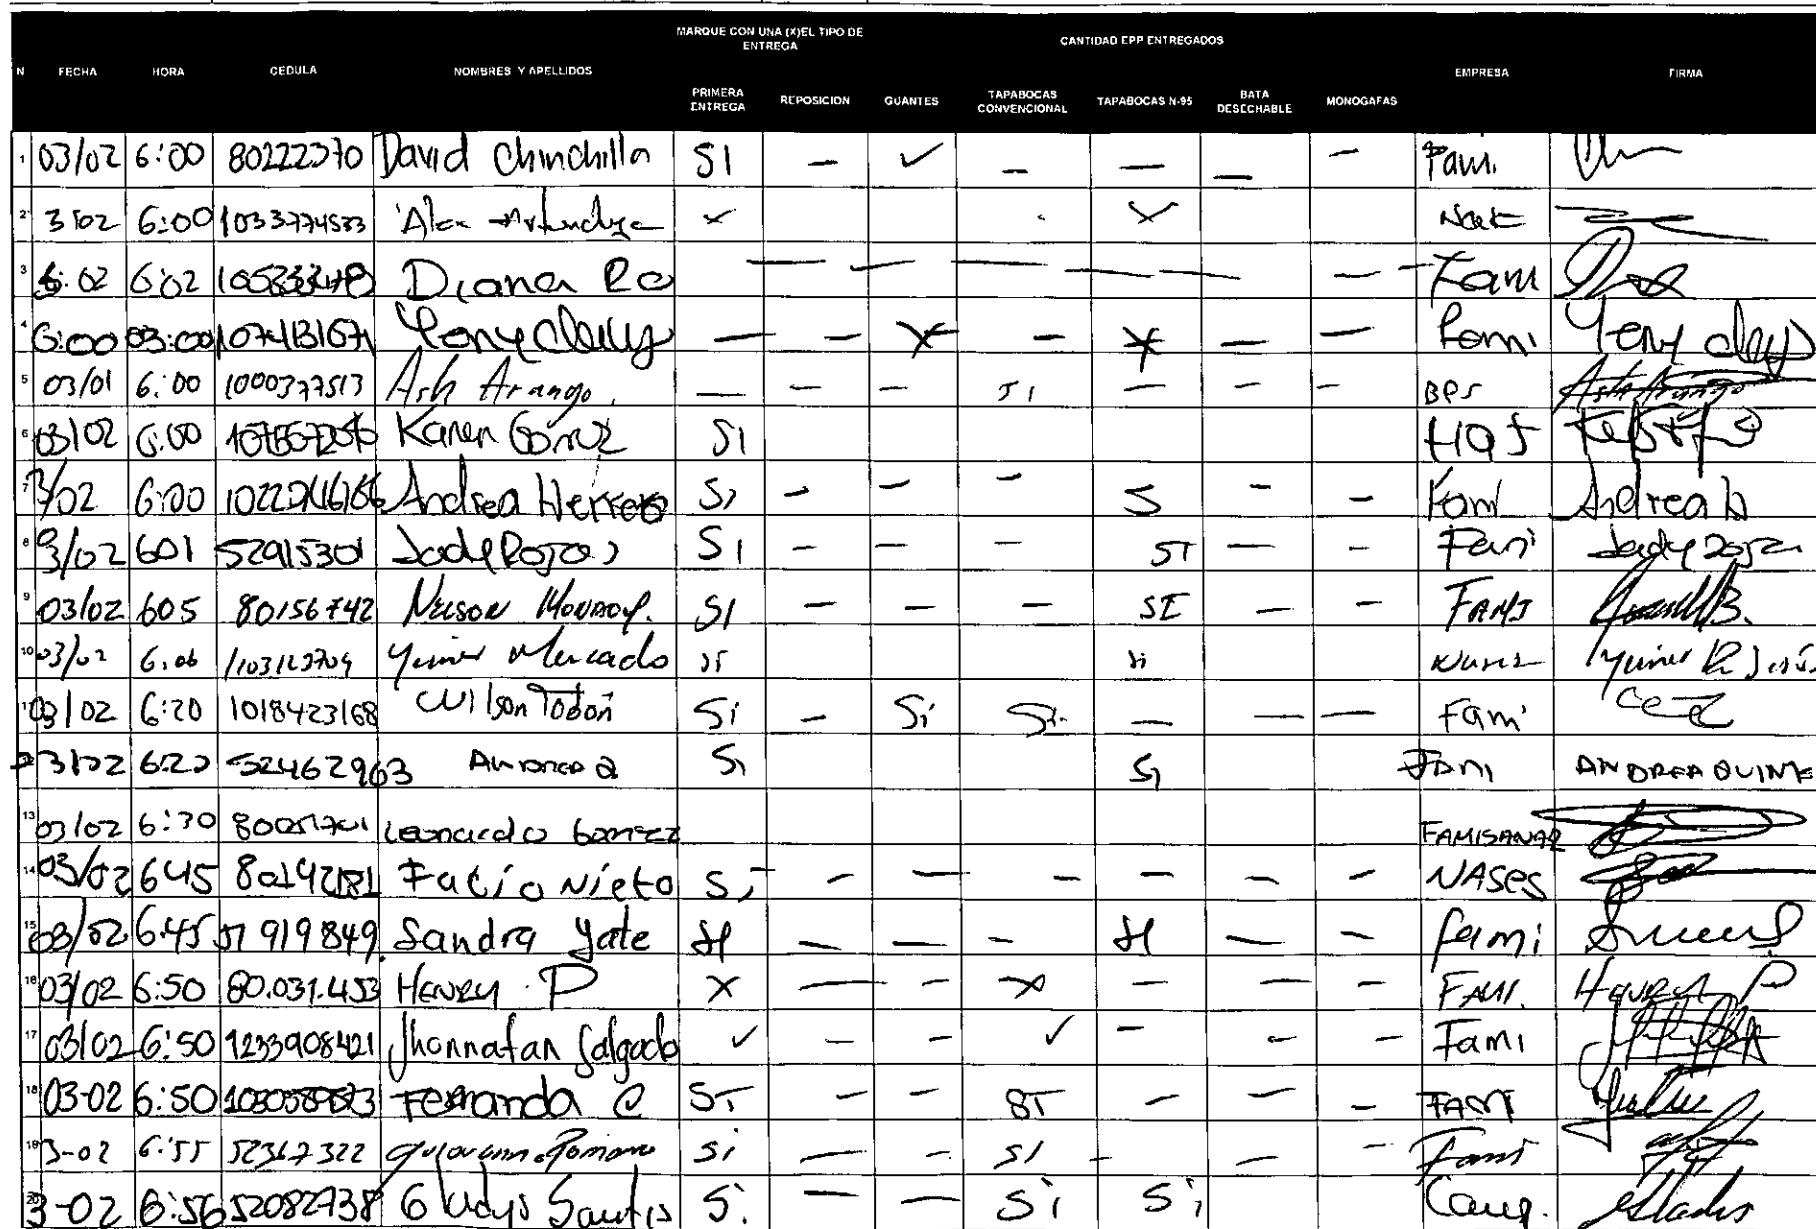 MARQUE CON UNA (X)EL TIPO DE ENTREGA CANTIDAD EPP ENTREGADOS
N FECHA HORA CEDULA NOMBRES Y APELLIDOS EMPRESA FIRMA
PRIMERA ENTREGA REPOSICION GUANTES TAPABOCAS CONVENCIONAL TAPABOCAS N-95 BATA DESECHABLE MONOGAFAS
1 03/02 6:00 80222370 David Chinchilla SI — ✓ — — — — Fami.
2 3/02 6:00 1033774533 Alex x x
3 6:02 Diana Ro — — — — — — — Fami
4 6:00 03:00 1074131671 — — X — X — — Fami Yeny
5 03/01 6:00 1000377513 Ash Arango. — — — SI — — — BPS Ash Arango
6 03/02 6:00 Karen Gómez SI
7 3/02 6:00 Andrea Herrera Si — — — S — — Fami Andrea h
8 3/02 601 52915301 Jady Rojas SI — — — SI — — Fami Jady Rojas
9 03/02 605 80156742 Nelson Monroy. SI — — — SI — — FAMI
10 03/02 6:06 1103123709 Yimer Mercado si si
11 03/02 6:20 1018423168 Wilson Tobón Si — Si Si — — — Fami
3/02 620 52462963 Andrea Q Si Si Fami ANDREA QUINE
13 03/02 6:30 Leonardo Gomez FAMISANAR
14 03/02 645 Fabio Nieto Si — — — — — — NASES
15 03/02 6:45 51 919 849 Sandra Yate SI — — — SI — — fami
16 03/02 6:50 80.031.453 Henry P X — — X — — — FAMI. Henry P
17 03/02 6:50 1233908421 Jhonnatan Salgado ✓ — — ✓ — — — Fami
18 03-02 6:50 Fernanda C SI — — SI — — — FAMI
19 3-02 6:55 52367322 Giovanna Romano Si — — SI — — — Fami
20 3-02 6:56 52082738 Gladys Santis Si — — Si Si